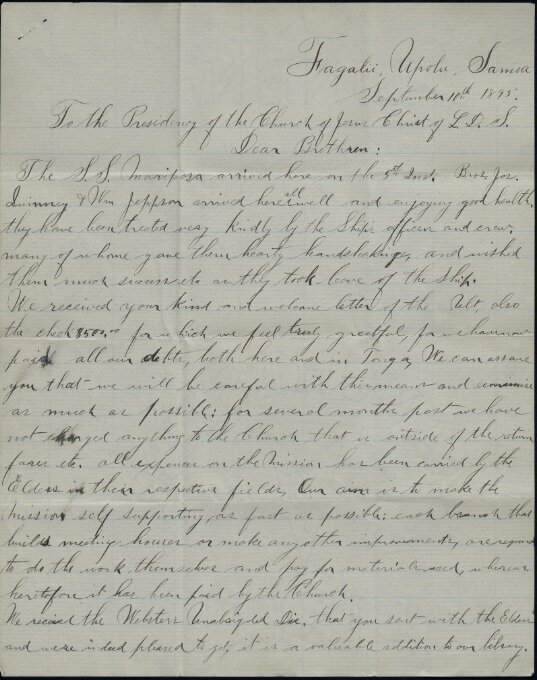 Fagalii, Upolu, Samoa
September 10th 1895.
To the Presidency of the Church of Jesus Christ of L. D. S.
Dear Brethren:
The S.S. Mariposa arrived here on the 5th Inst. Bros. Jos.
Quinney & Wm Jeppson arrived here all well and enjoying good health,
they have been treated very kindly by the Ship's officers and crew,
many of whome gave them hearty handshakings, and wished
them much success etc as they took leave of the Ship.
We received your kind and welcome letter of the Ult, also
the check $500.00 for which we feel truly greatful, for we have now
paid all our debts, both here and in Tonga, We can assure
you that we will be careful with this means and economise
as much as possible; for several months past we have
not charged anything to the Church that is outside of the return
fares etc. all expenses on the Mission has been carried by the
Elders in their respective fields, Our aim is to make the
Mission self supporting, as fast as possible; each branch that
builds meeting houses or make any other improvements, are required
to do the work themselves and pay for materials used, whereas
heretofore it has been paid by the Church.
We received the Websters Unabridged Dic. that you sent with the Elders
and were indeed pleased to get, it is a valuable addition to our library.